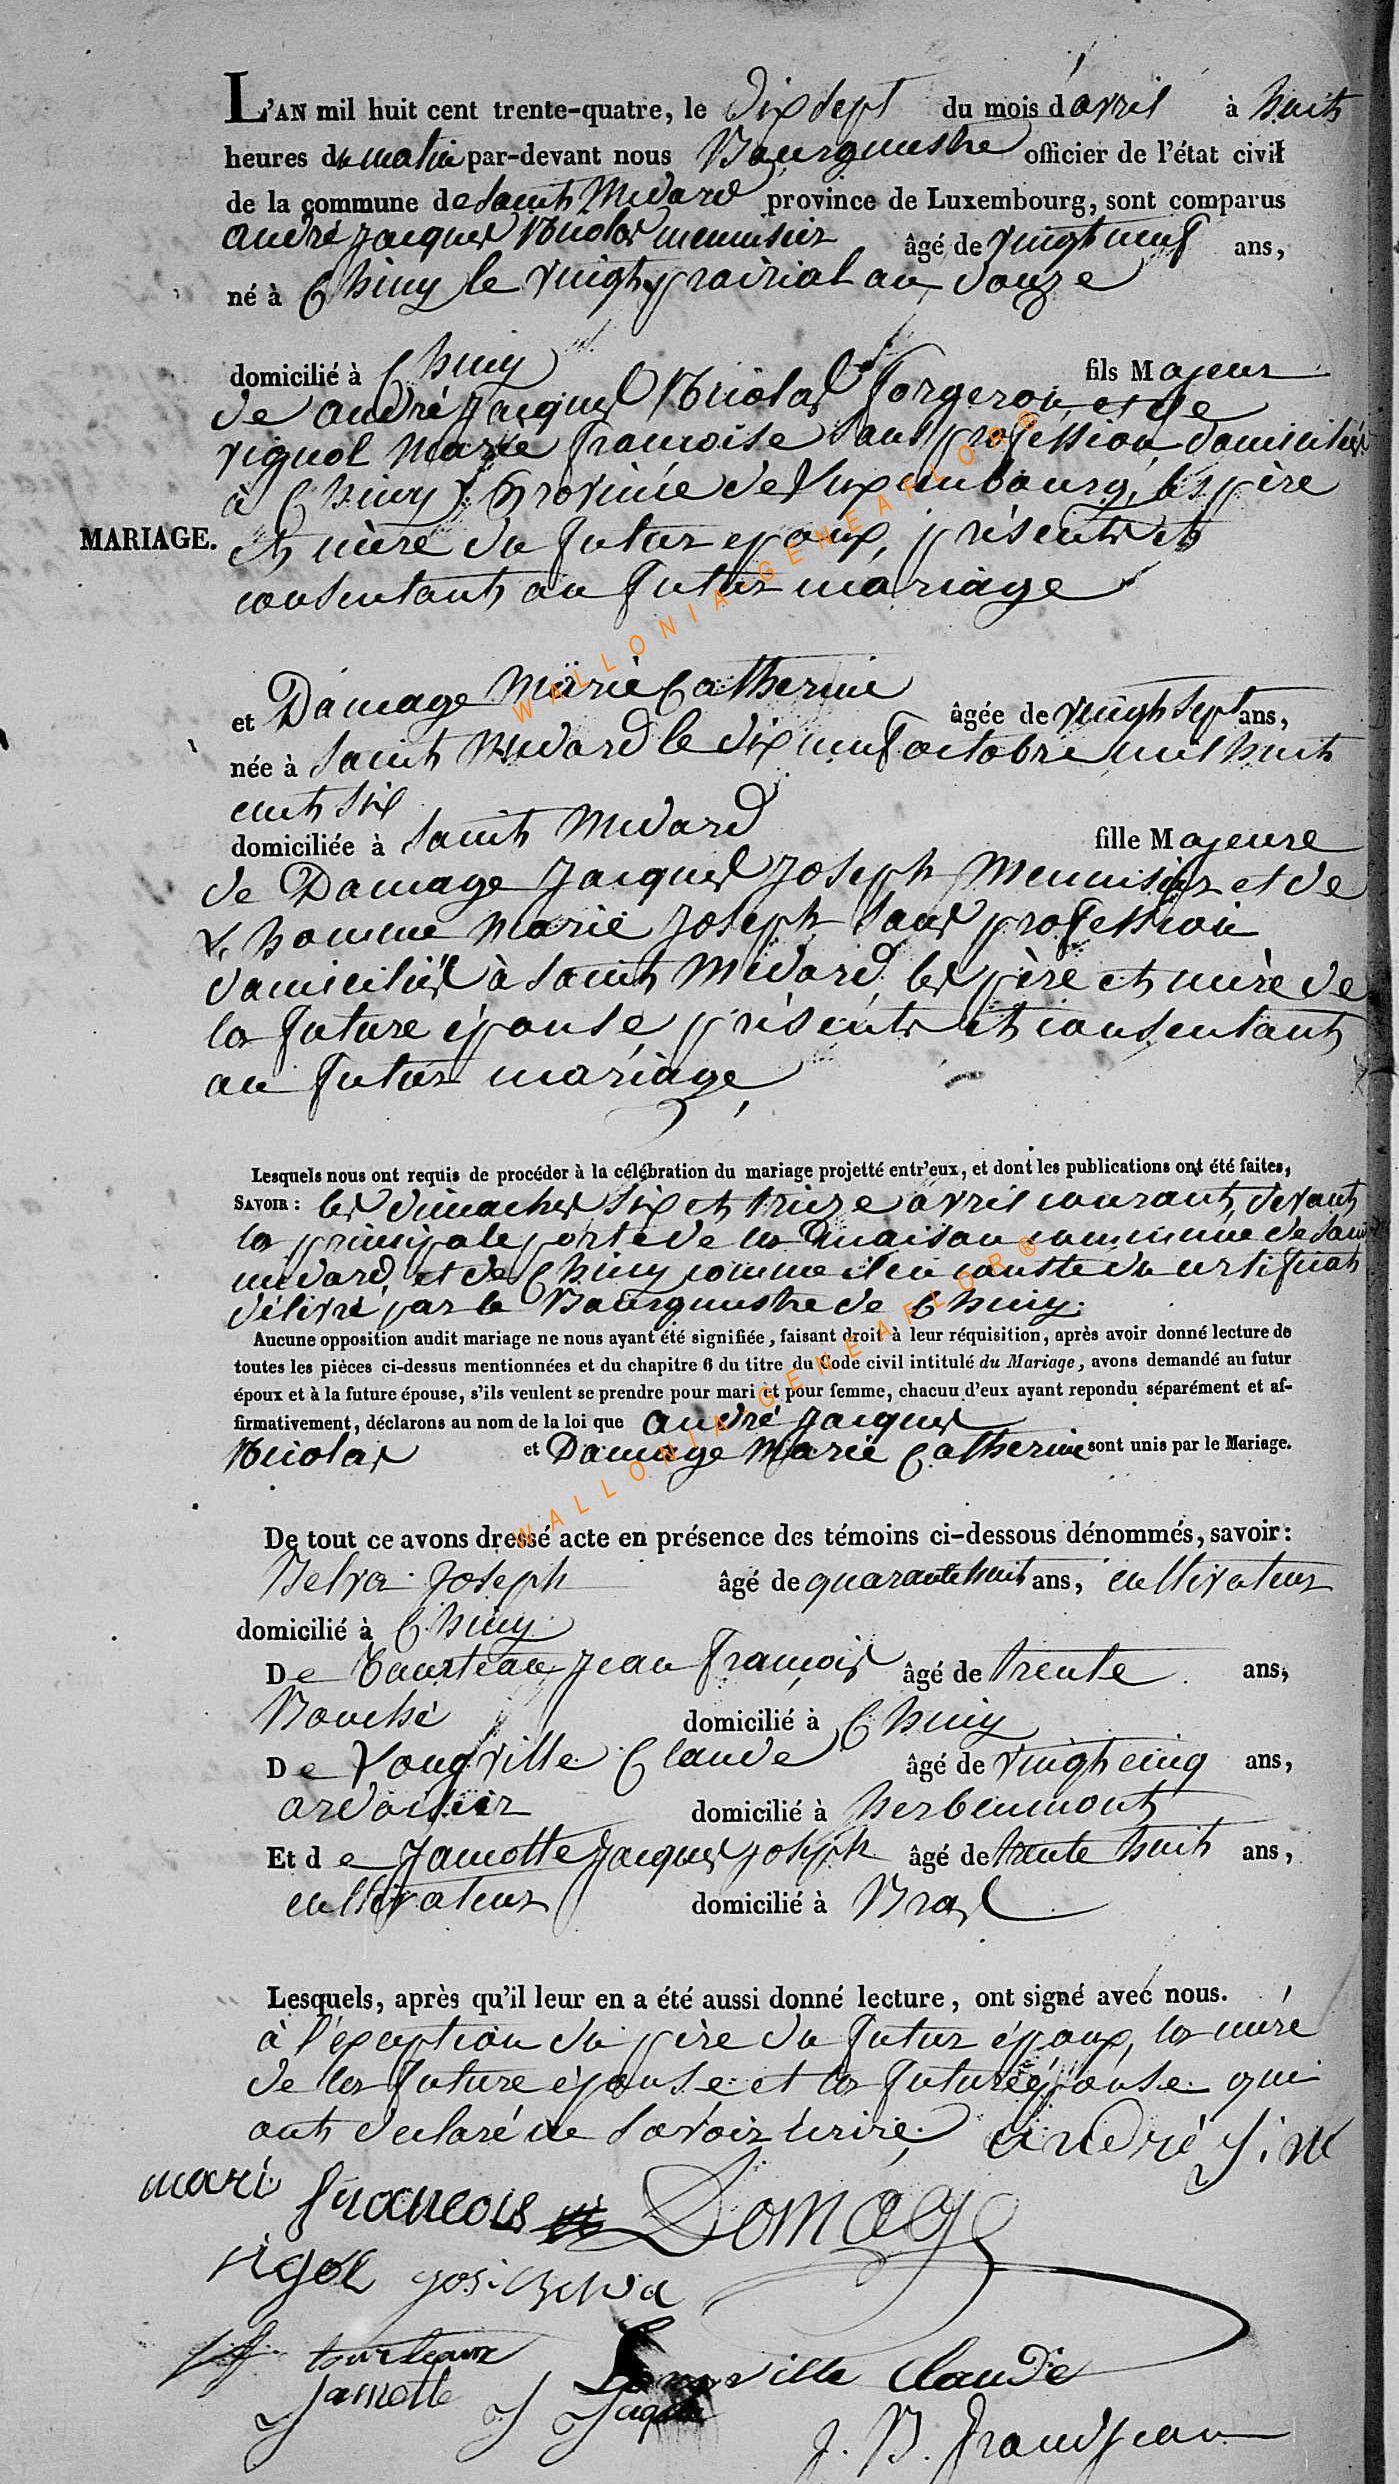 L'AN mil huit cent trente-quatre, le dix sept du mois d'avril à huit
heures du matin par-devant nous Bourgmestre officier de l'état civil
de la commune de Saint Médard province de Luxembourg, sont comparus
andré jacques Nicolas menuisier âgé de vingt neuf ans,
né à Chiny le vingt prairial an douze
domicilié à Chiny fils Majeur
de andré jacques Nicolas forgeron et de
vignol marie francoise sans profession domiciliés
à Chiny Province de Luxembourg, les père
et mère du futur epoux, présents et
consentants au futur mariage
MARIAGE.
et Damage Marie Catherine âgée de vingt sept ans,
née à Saint Médard le dix neuf octobre mil huit
cent six
domiciliée à Saint Médard fille Majeure
de Damage jacques joseph Menuisier et de
L'homme marie joseph sans profession
domiciliés à Saint Médard, les père et mère de
la future épouse, présents et consentants
au futur mariage
Lesquels nous ont requis de procéder à la célébration du mariage projetté entr'eux, et dont les publications ont été faites,
SAVOIR : les dimaches six et treize avril courant, devant
la principale porte de la maison commune de Saint
médard, et de Chiny comme il en conste du certificat
délivré par le Bourgmestre de Chiny.
Aucune opposition audit mariage ne nous ayant été signifiée, faisant droit à leur réquisition, après avoir donné lecture de
toutes les pièces ci-dessus mentionnées et du chapitre 6 du titre du Code civil intitulé du Mariage, avons demandé au futur
époux et à la future épouse, s'ils veulent se prendre pour mari et pour femme, chacuu d'eux ayant repondu séparément et af-
firmativement, déclarons au nom de la loi que andré jacques
Nicolas et Damage Marie Catherine sont unis par le Mariage.
De tout ce avons dressé acte en présence des témoins ci-dessous dénommés, savoir :
Belva joseph âgé de quarante huit ans, cultivateur
domicilié à Chiny
De Tourteaux jean françois âgé de trente ans,
domicilié à Chiny
De Longville Claude âgé de vingt cinq ans,
ardoisier domicilié à herbeumont
Et de Jamotte jacques joseph âgé de trente huit ans,
cultivateur domicilié à Bras
Lesquels, après qu'il leur en a été aussi donné lecture, ont signé avec nous.
à l'exception du père du futur époux, la mère
de la future épouse et la future épouse qui
ont déclaré ne savoir écrire. andré j. n
mari francois Domage
vigol jos. Belva
tourteaux ville claude
jamotte J Jaque
J. B. Grandjean
WALLONIA-GENEAFLOR®
WALLONIA-GENEAFLOR®